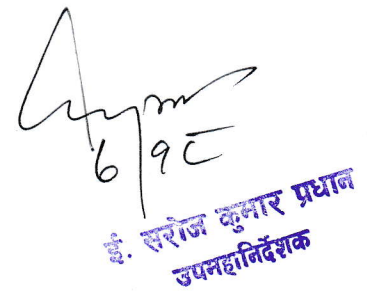 ६/१८
ई. सरोज कुमार प्रधान
उपमहानिर्देशक